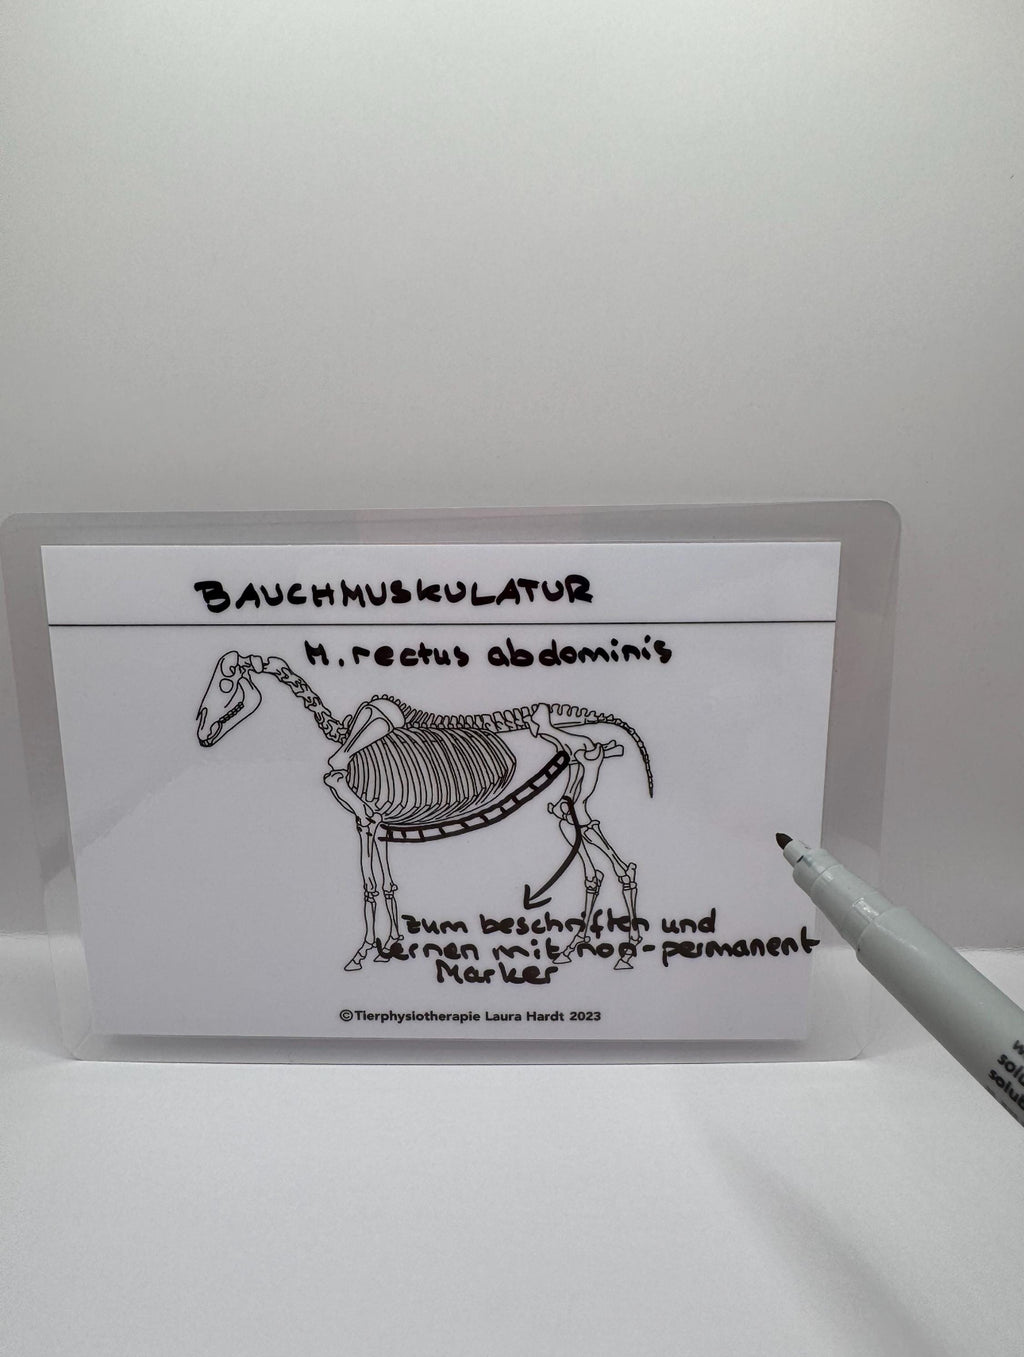 BAUCHMUSKULATUR
M. rectus abdominis
zum beschriften und
Lernen mit non-permanent
Marker
©Tierphysiotherapie Laura Hardt 2023